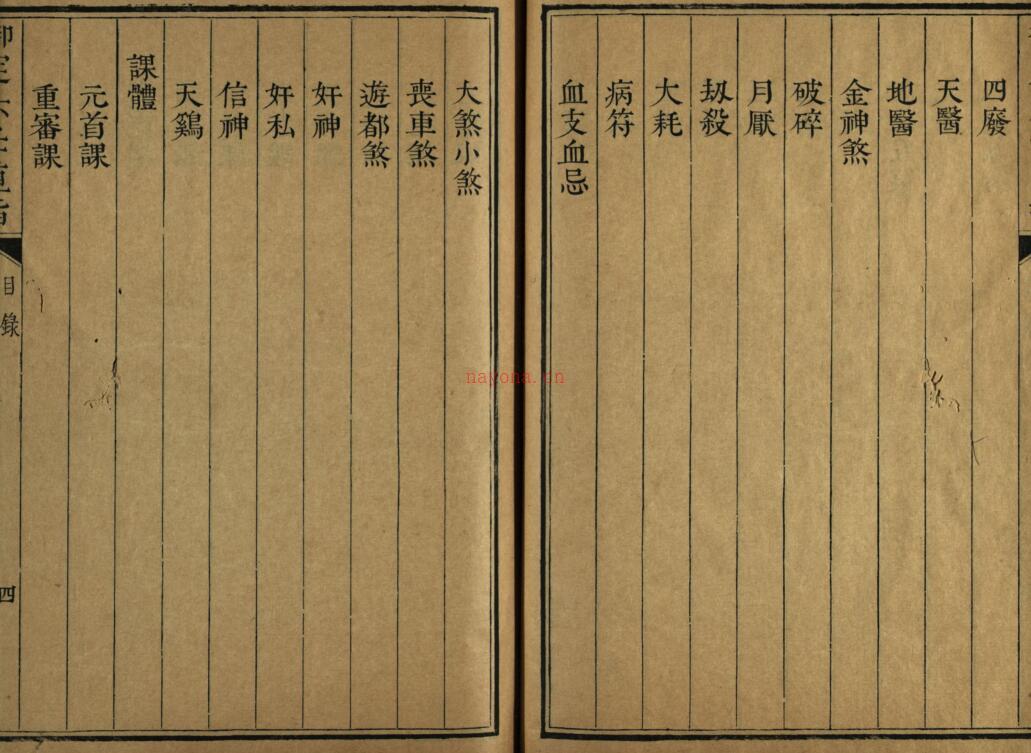 四廢
天醫
地醫
金神煞
破碎
月厭
刼殺
大耗
病符
血支血忌
大煞小煞
喪車煞
遊都煞
奸神
奸私
信神
天鷄
課體
元首課
重審課
目錄
四
nayona.cn